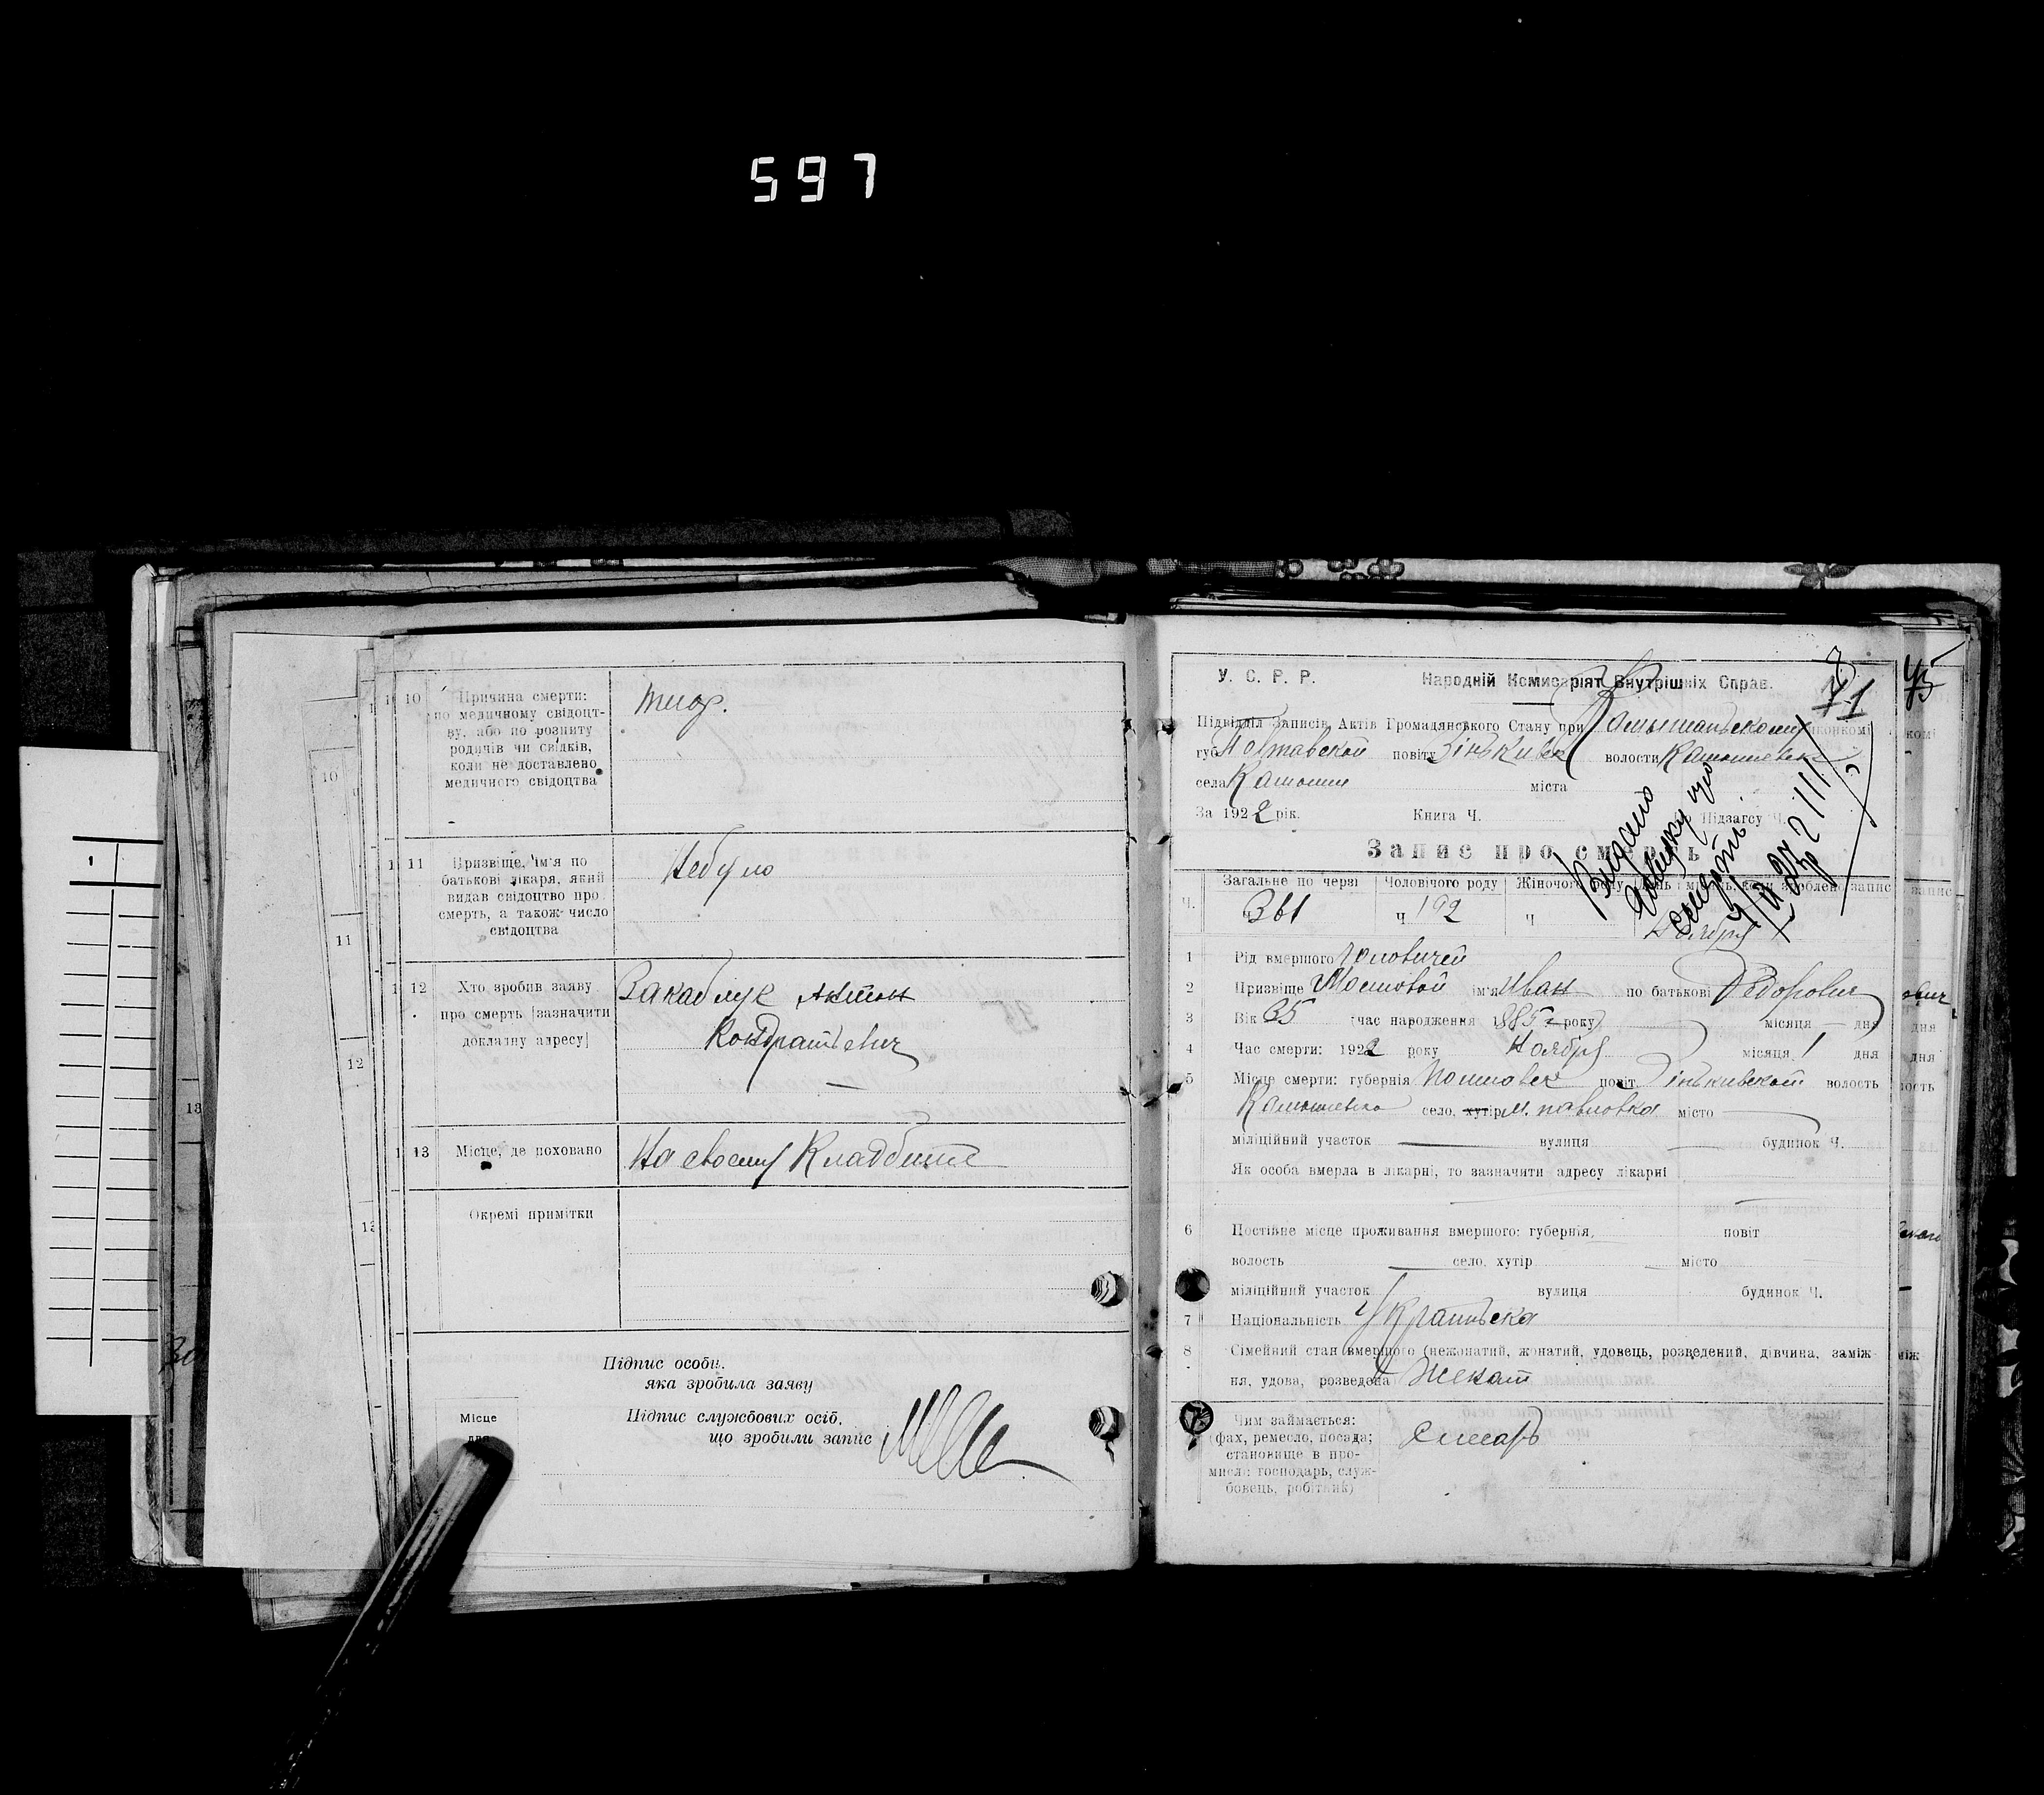 597
10 Причина смерти:
по медичному свідоцт-
ву, або по розпиту
родичів чи свідків,
коли не доставлено
медичного свідоцтва
тиф.
11 Призвіще, ім'я по
батькові лікаря, який
видав свідоцтво про
смерть, а також число
свідоцтва
Небуло
12 Хто зробив заяву
про смерть [зазначити
докладну адресу]
Закаблук Антон
Кондратьевич
13 Місце, де поховано
На своему Кладбище
Окремі примітки
Підпис особи,
яка зробила заяву
Підпис службових осіб,
що зробили запис
Місце
для
10
11
12
13
71
У. С. Р. Р. Народній Комисаріят Внутрішніх Справ.
Підвідділ Записів Актів Громадянського Стану при
губ. Полтавской повіту Зіньківск волости
села Камыши міста
За 1922 рік. Книга Ч. Підзагсу Ч.
Запис про смерть
Видано
довідку про
смерть
Загальне по черзі Чоловічого роду Жіночого роду День і місяць, коли зроблено запис
Ч. 361 Ч. 192 Ч
Ноября
1 Рід вмершого
2 Призвіще Мостовой ім'я Иван по батькові Федорович
3 Вік 35 (час народження 1885 року) місяця дня
4 Час смерти: 1922 року Ноября місяця 1 дня
5 Місце смерти: губернія повіт Зіньківской волость
село, хутір м. павловка місто
міліційний участок вулиця будинок Ч.
Як особа вмерла в лікарні, то зазначити адресу лікарні
6 Постійне місце проживання вмершого: губернія повіт
волость село, хутір місто
міліційний участок вулиця будинок Ч.
7 Національність Украинська
8 Сімейний стан вмершого (нежонатий, жонатий, удовець, розведений, дівчина, заміж
ня, удова, розведена Женат
Чим займається:
(фах, ремесло, посада;
становище в про-
мислі: господарь, служ-
бовець, робітник)